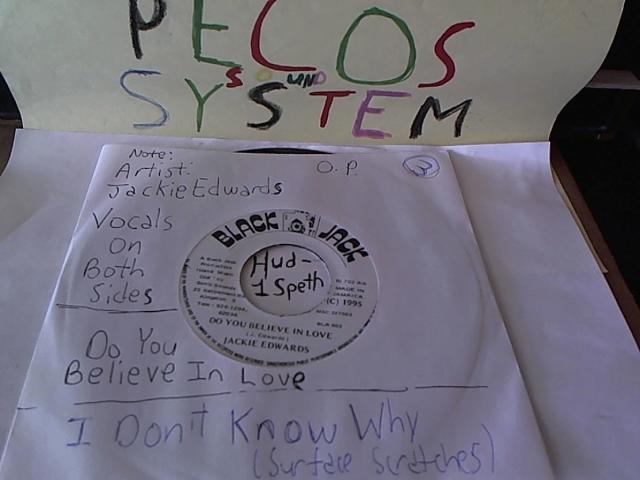 PECOS
SOUND
SYSTEM
Note:
Artist:
Jackie Edwards
O.P.
3
Vocals
On
Both
Sides
BLACK JACK
Hud-
1 Speth
MADE IN
JAMAICA
(C) 1995
DO YOU BELIEVE IN LOVE
(J. Edwards)
JACKIE EDWARDS
Do You
Believe In Love
I Don't Know Why
(Surface Scratches)